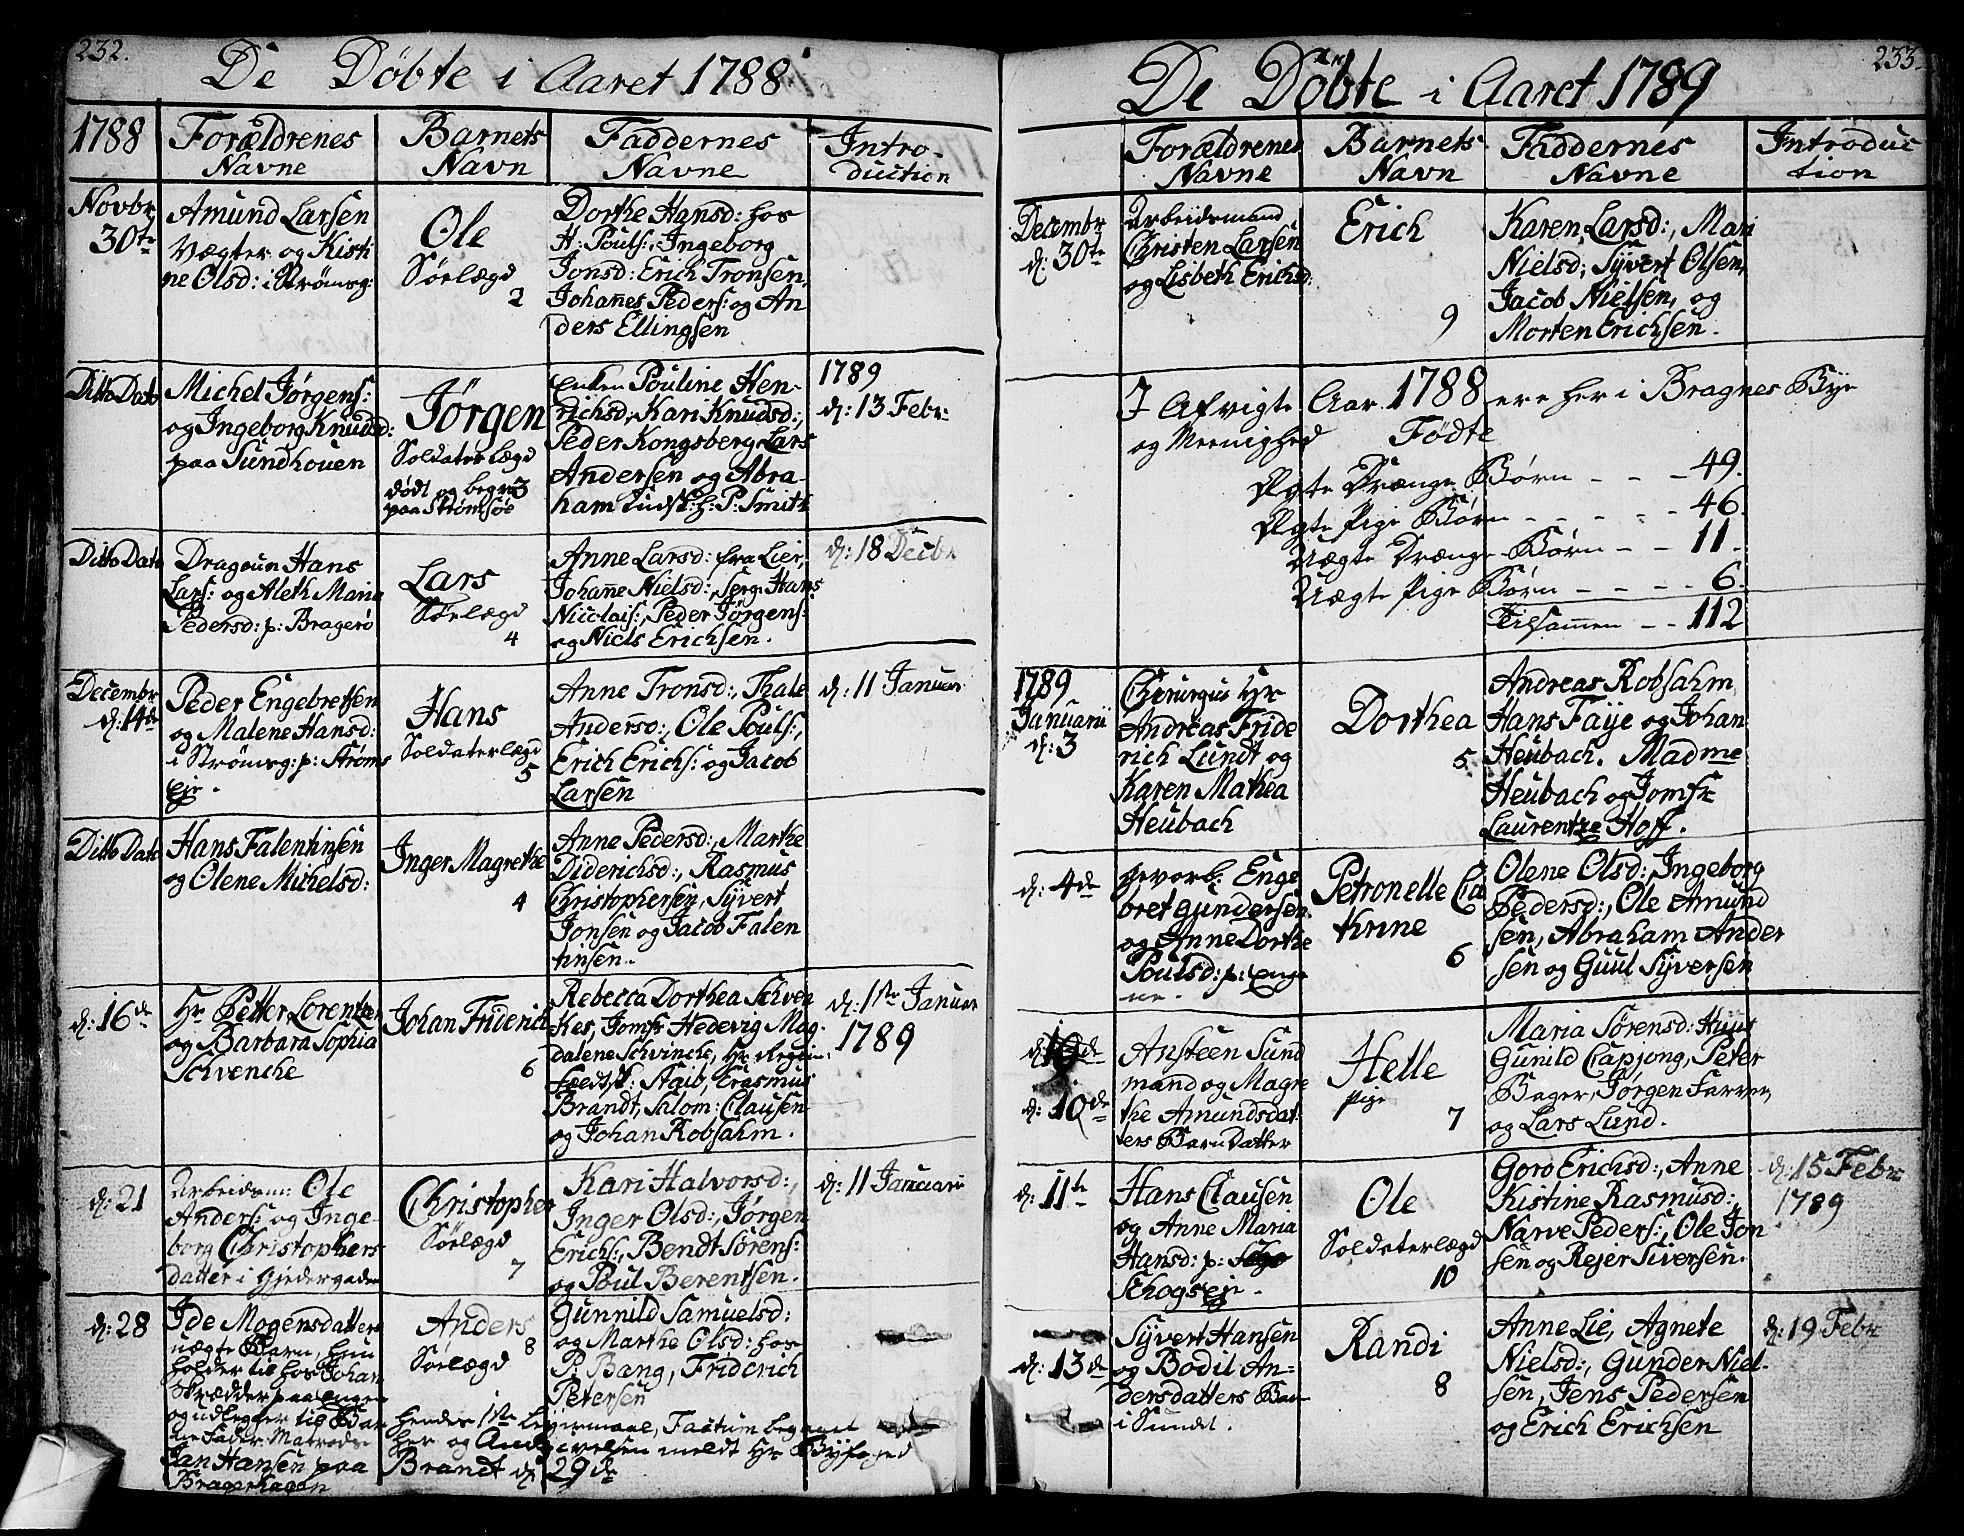 232.
De Döbte i Aaret 1788
1788
Forældrenes
Navne
Barnets
Navn
Faddernes
Navne
Intro-
duction
Novbr
30te
Amund Larsen
Vægter og Kisti
ne Olsd: i Strömsg:
Ole
Söelægd
2
Dorthe Hansd: hos
H: Pouls:, Ingeborg
Jonsd: Erich Tronsen,
Johanes Peders: og An
ders Ellingsen
Ditto Dato
Michel Jörgens:
og Ingeborg Knudsd:
paa Sundhouen
Jörgen
Soldaterlægd
dödt og begr: 3
paa Strömsöe
Enken Pouline Hen-
richsd, Kari Knudsd:,
Peder Kongsberg, Lars
Andersen og Abra-
ham Lindst: h: P: Smith
1789
d: 13 Febr:
Ditto Dato
Dragoun Hans
Lars: og Aleth Marie
Pedersd: p: Bragerö
Lars
Söelægd
4
Anne Larsd: fra Lier,
Johane Nielsd:, Serg: Hans
Nicolais:, Peder Jörgens:
og Niels Erichsen.
d: 18 Decbr
Decembr
d: 14de
Peder Engebretsen
og Malene Hansd:
i Strömsg: p: Ströms
eje.
Hans
Soldaterlægd
5
Anne Tronsd:, Thale
Andersd:, Ole Pouls:,
Erich Erichs: og Jacob
Larsen
d: 11 Januar
Ditto Dato
Hans Falentinsen
og Olene Michelsd:
Inger Magrethe
4
Anne Pedersd:, Marthe
Diderichsd:, Rasmus
Christophersen, Syvert
Jonsen og Jacob Falen
tinsen.
d: 16de
Hr Petter Lorentzen
og Barbara Sophia
Schvencke
Johan Friderich
6
Rebecca Dorthea Schven
kes, Jomfr Hedevig Mag-
dalene Schvincke, Hr Regim:
Feldtsk: Staib, Erasmus
Brandt, Salom: Clausen
og Johan Robsahm.
d: 1ste Januar
1789
d: 21
Arbeidsm: Ole
Anders: og Inge-
borg Christophers
datter i Gjedergaden
Christopher
Söelægd
7
Kari Halvorsd:,
Inger Olsd:, Jörgen
Erichs:, Bendt Sörens:
og Poul Berentsen.
d: 11 Januarii
d: 28
Ide Mogensdatters
uægte Barn, hun
holder til hos Johan
Skrædder paa Engen
og udlegger til Bar
ne Fader Matrods
Jan Hansen paa
Bragerhagen
Anders
8
Söelægd
hendes 1ste Leiermaal, Factum begaaet
her og Angivelsen meldt Hr Byfoged
Brandt d: 29de
Gunnild Samuelsd:
og Marthe Olsd: hos
P: Bang, Friderich
Petersen
233.
De Döbte i Aaret 1789
Forældrenes
Navne
Barnets
Navn
Faddernes
Navne
Introduc
tion
Decembr
d: 30te
Arbeidsmand
Christen Larsen
og Lisbeth Erichsd:
Erich
9
Karen Larsd:, Mari
Nielsd:, Syvert Olsen,
Jacob Nielsen, og
Morten Erichsen.
I Afvigte Aar 1788 ere her i Bragnes Bye
og Meenighed Födte
Ægte Drænge Börn - - - 49.
Ægte Pige Börn - - - - - 46.
Uægte Drænge Börn - - 11.
Uægte Pige Börn - - - - 6.
Tilsamen - - 112
1789
Januarii
d: 3
Chirurgus Hr
Andreas Fride
rich Lundt og
Karen Mathea
Heubach
Dorthea
5
Andreas Robsahm
Hans Faÿe og Johan
Heubach. Madme
Heubach og Jomfr
Laurentze Hoff.
d: 4de
Enge
bret Gundersen
og Anne Dorthe
Poulsd: p: Enge
ne.
Petronelle Ca
thrine
6
Olene Olsd:, Ingeborg
Pedersd:, Ole Amund
sen, Abraham Ander
sen og Guul Syversen
d: 10de
Ansteen Sund
mand og Magre
the Amundsdat-
ters Barn Datter
Helle
Pige
7
Maria Sörensd: Huus
Gunild Capjong, Peter
Bager, Jörgen Farver,
og Lars Lund.
d: 11te
Hans Clausen
og Anne Maria
Hansd: p:
Schogseje.
Ole
Soldaterlægd
10
Goro Erichsd:, Anne
Kistine Rasmusd:,
Narve Peders:, Ole Jon
sen og Rejer Siversen.
d: 15 Febr
1789
d: 13de
Syvert Hansen
og Bodil An=
dersdatters Bar
i Sundet.
Randi
8
Anne Lie, Agnete
Nielsd:, Gunder Niel-
sen, Jens Pedersen
og Erich Erichsen
d: 19 Febr